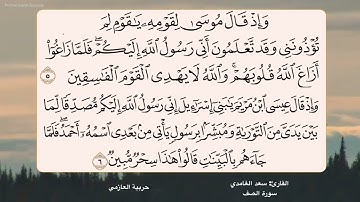 وَإِذْ قَالَ مُوسَىٰ لِقَوْمِهِۦ يَٰقَوْمِ لِمَ
تُؤْذُونَنِى وَقَد تَّعْلَمُونَ أَنِّى رَسُولُ ٱللَّهِ إِلَيْكُمْ ۖ فَلَمَّا زَاغُوٓا۟
أَزَاغَ ٱللَّهُ قُلُوبَهُمْ ۚ وَٱللَّهُ لَا يَهْدِى ٱلْقَوْمَ ٱلْفَٰسِقِينَ ٥
وَإِذْ قَالَ عِيسَى ٱبْنُ مَرْيَمَ يَٰبَنِىٓ إِسْرَٰٓءِيلَ إِنِّى رَسُولُ ٱللَّهِ إِلَيْكُم مُّصَدِّقًا لِّمَا
بَيْنَ يَدَىَّ مِنَ ٱلتَّوْرَىٰةِ وَمُبَشِّرًۢا بِرَسُولٍ يَأْتِى مِنۢ بَعْدِى ٱسْمُهُۥٓ أَحْمَدُ ۖ فَلَمَّا
جَآءَهُم بِٱلْبَيِّنَٰتِ قَالُوا۟ هَٰذَا سِحْرٌ مُّبِينٌ ٦
القارئ: سعد الغامدي
سورة الصف
حربية العازمي